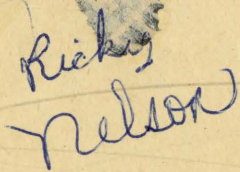 Ricky
Nelson